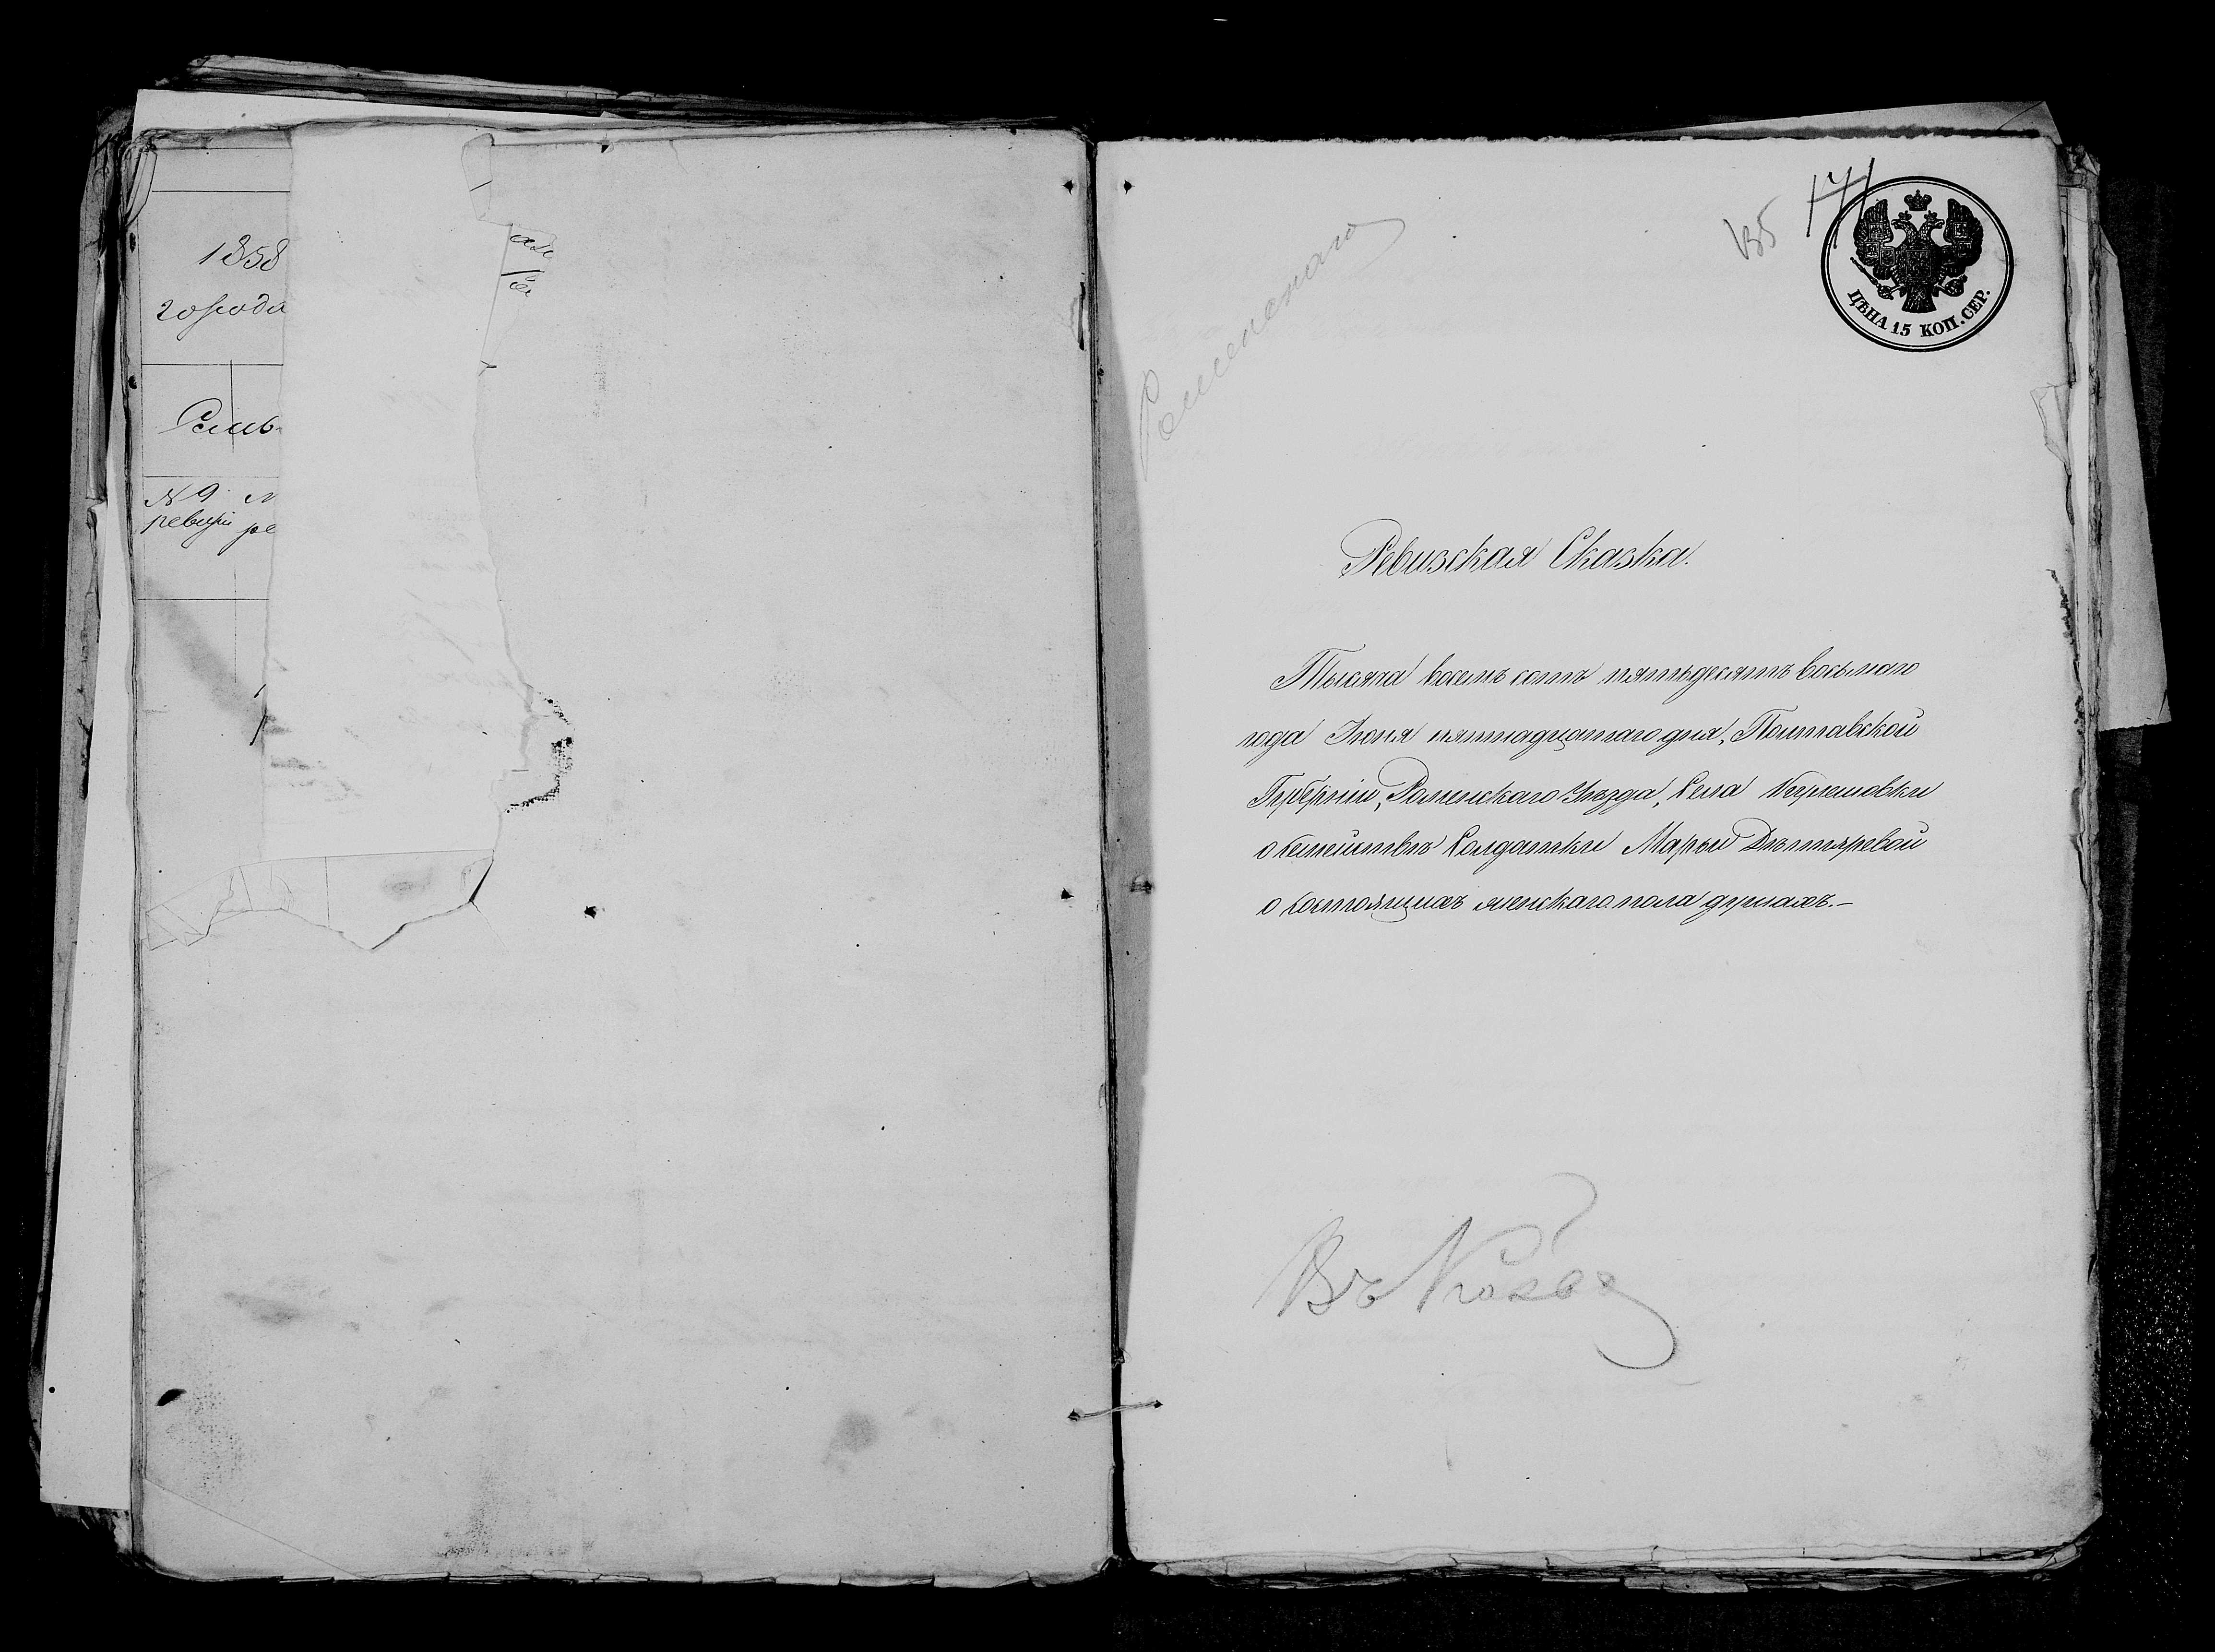 1858
города
Семь-
№ 9.
ревизіи ре
Роменскаго
135 171
ЦѢНА 15 КОП. СЕР.
Ревизская Сказка.
Тысяча восемь сотъ пятьдесятъ восьмаго
года Іюня пятнадцатаго дня, Полтавской
Губерніи, Роменскаго Уѣзда, Села
о семействѣ Солдатки Марьи Дегтяревой
о состоящихъ женскаго пола душахъ.—
Въ